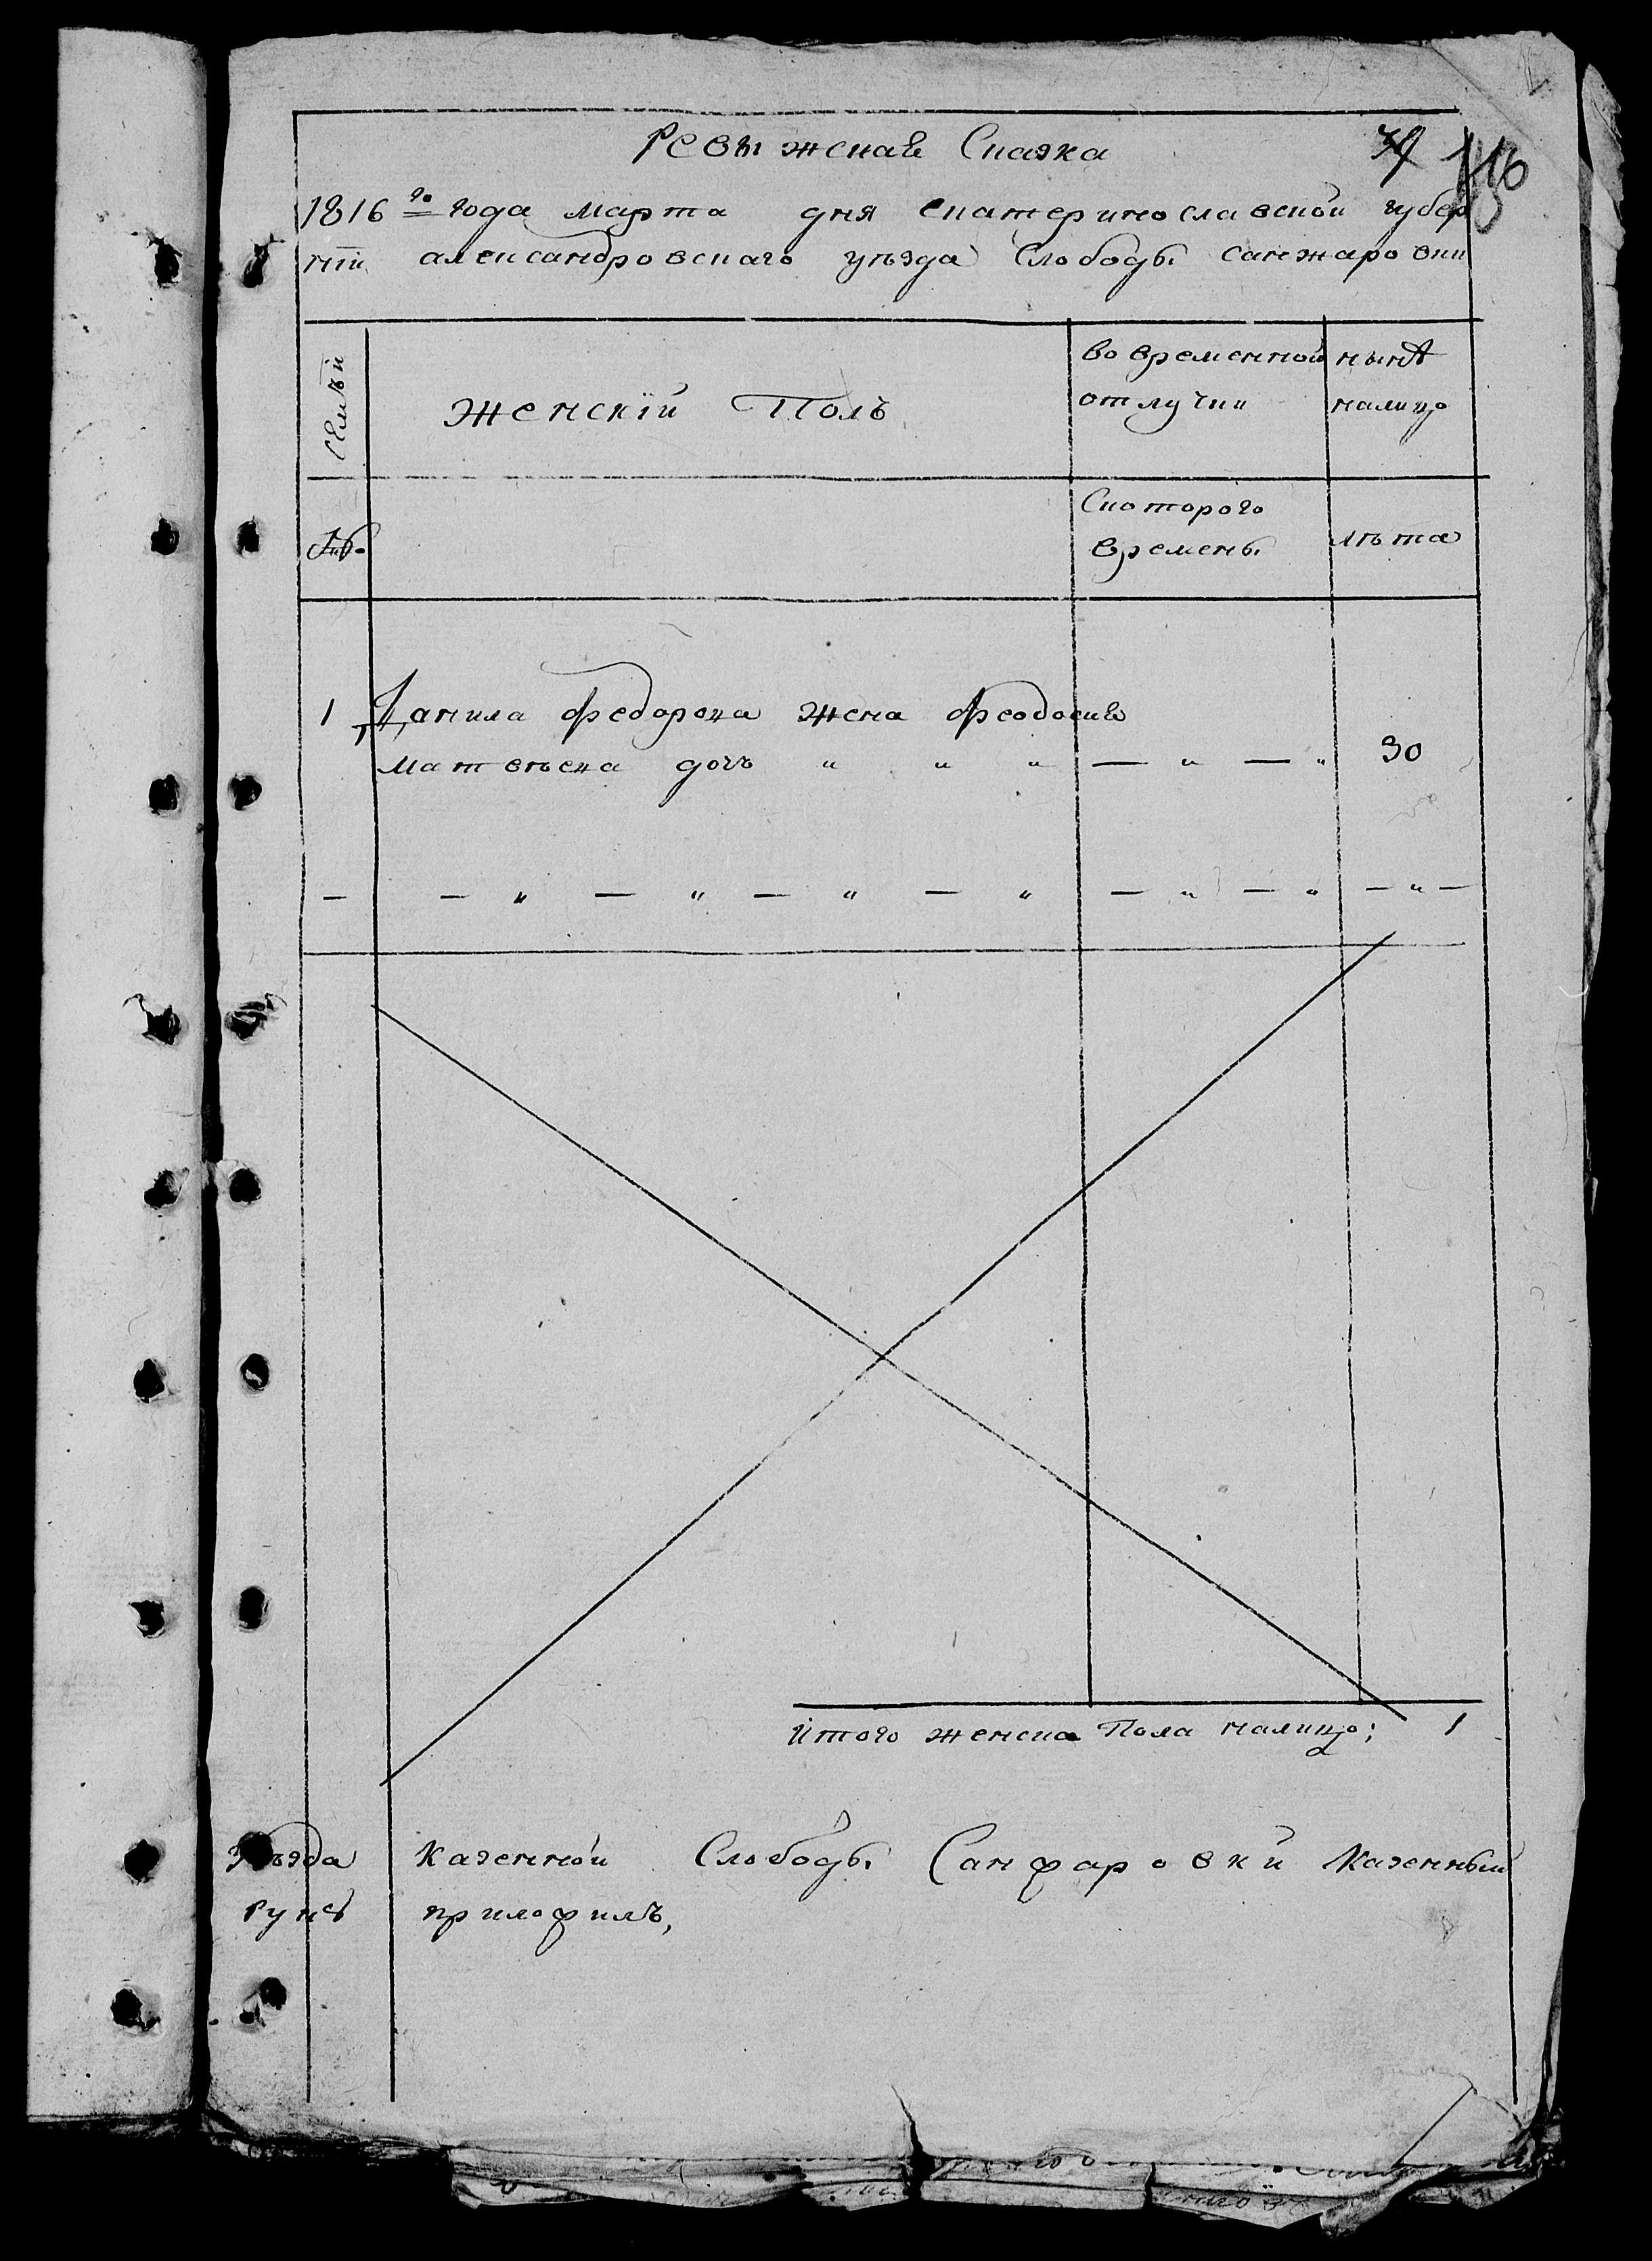 Ревизская Сказка
116
1816 го года марта дня екатеринославской губер
нїи александровскаго уѣзда Слободы санжаровки
Семьи
женскїй Полъ
во временной отлучки
нынѣ налицо
№
Скоторого времены
лѣта
1 Данила федорова жена феодосия
матвѣева дочь " " " — " — " 30
— — " — " — " — " — " — " — " —
Итого женска Пола налицо: 1
уѣзда казенной Слободы Санжаровки казенный
руку приложилъ,